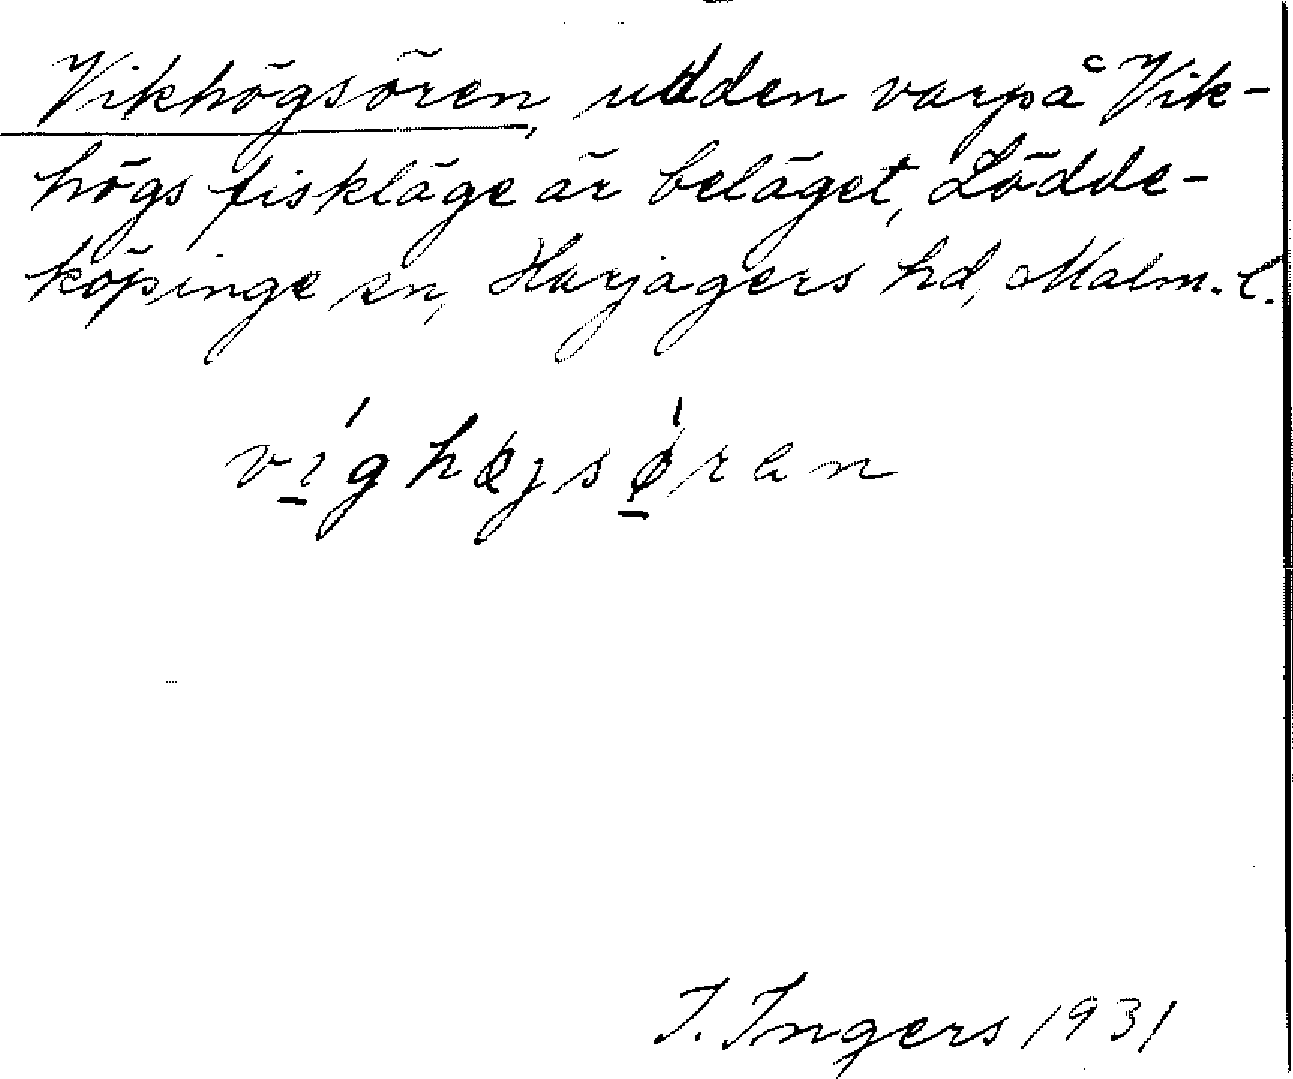 Vikhögsören, udden varpå Vik-
högs fiskläge är beläget, Lödde-
köpinge sn, Harjagers hd, Malm. l.
víghøjsø̀ran
I. Ingers 1931